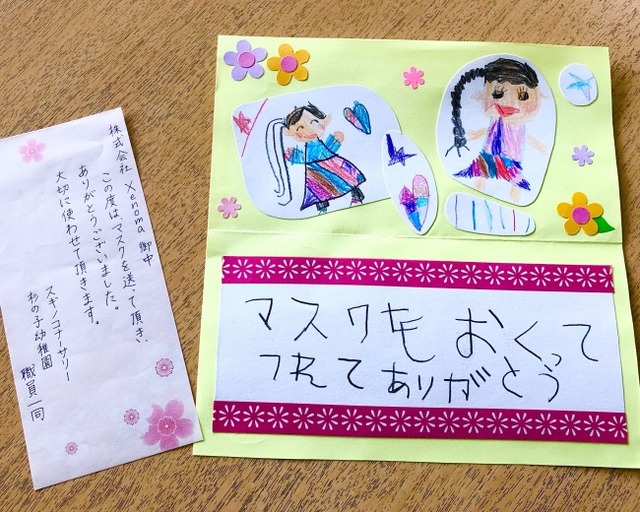 株式会社 Xenoma 御中
この度はマスクを送って頂き、
ありがとうございました。
大切に使わせて頂きます。
スギノコナーサリー
杉の子幼稚園
職員一同
マスクを おくって
つれて ありがとう